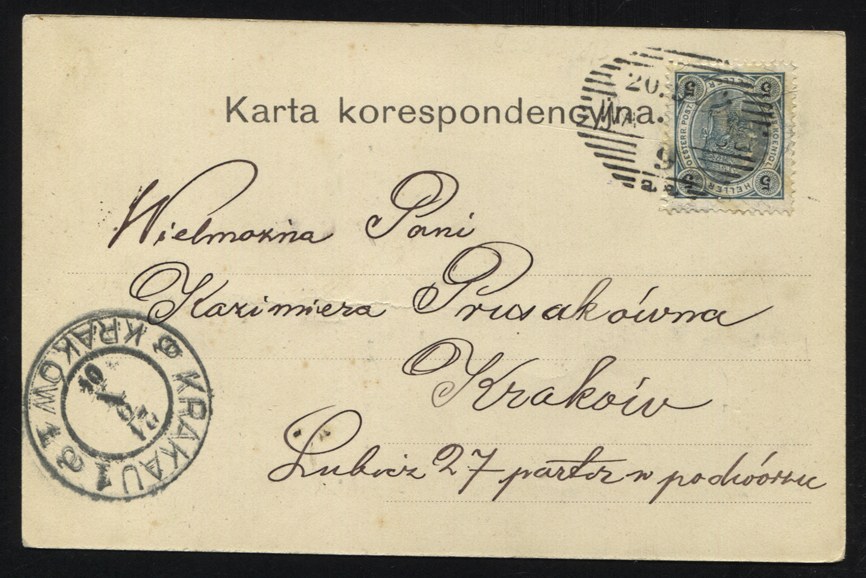 Karta korespondencyjna.
20.
9
5 5
HELLER
5 5
Wielmożna Pani
Kazimiera Prusakówna
Kraków
Lubicz 27 parter w podwórzu
KRAKAU 1 KRAKÓW 1